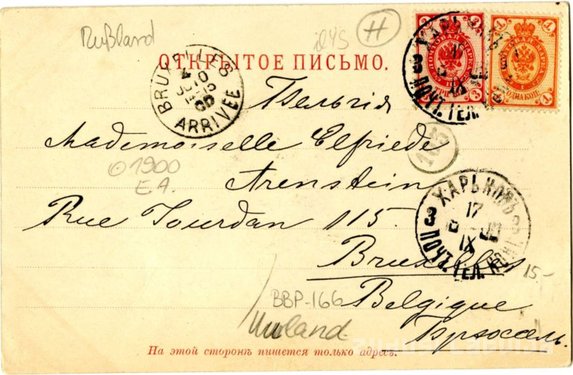 Rußland
H
ОТКРЫТОЕ ПИСЬМО.
BRUXELLES
ARRIVEE
ХАРЬКОВЪ
17
IX
3 ПОЧТ. ТЕЛ.
3
1
Бельгія
Mademoiselle Elfriede
Arenstein
Rue Jourdan 115.
Bruxelles
Belgique
Брюссель
©1900
E.A.
ХАРЬКОВЪ
17
IX
3 ПОЧТ. ТЕЛ.
15-
BBP-166
На этой сторонѣ пишется только адресъ.